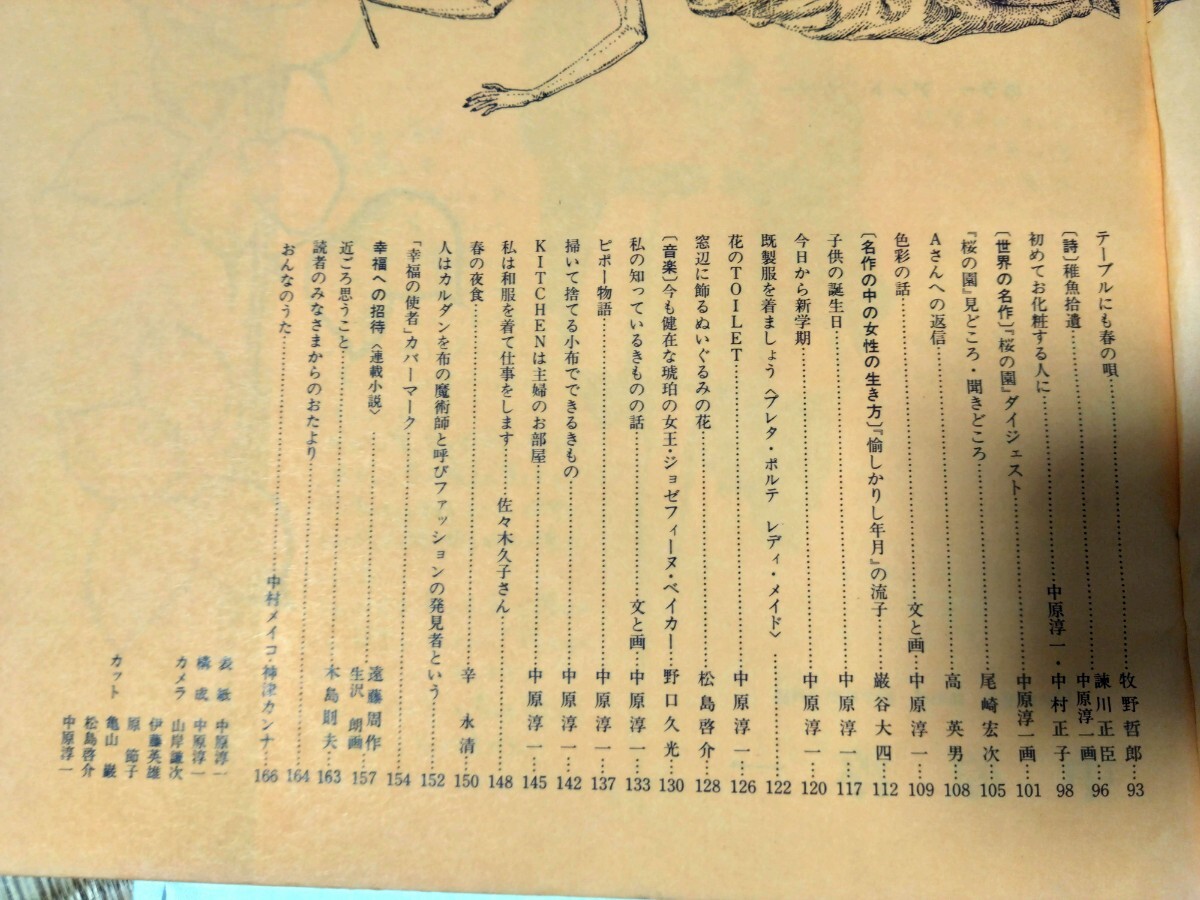 テーブルにも春の唄……牧野哲郎…93
〔詩〕稚魚拾遺……諫川正臣 中原淳一画…96
初めてお化粧する人に……中原淳一・中村正子…98
〔世界の名作〕『桜の園』ダイジェスト……中原淳一画…101
『桜の園』見どころ・聞きどころ……尾崎宏次…105
Aさんへの返信……高英男…108
色彩の話……文と画…中原淳一…109
〔名作の中の女性の生き方〕『愉しかりし年月』の流子……巌谷大四…112
子供の誕生日……中原淳一…117
今日から新学期……中原淳一…120
既製服を着ましょう〈プレタ・ポルテ レディ・メイド〉……122
花のTOILET……中原淳一…126
窓辺に飾るぬいぐるみの花……松島啓介…128
〔音楽〕今も健在な琥珀の女王・ジョゼフィーヌ・ベイカー…野口久光…130
私の知っているきものの話……文と画…中原淳一…133
ピポー物語……中原淳一…137
掃いて捨てる小布でできるきもの……中原淳一…142
KITCHENは主婦のお部屋……中原淳一…145
私は和服を着て仕事をします……佐々木久子さん……148
春の夜食……辛永清…150
人はカルダンを布の魔術師と呼びファッションの発見者という……152
「幸福の使者」カバーマーク……154
幸福への招待〈連載小説〉……遠藤周作 生沢朗画…157
近ごろ思うこと……木島則夫…163
読者のみなさまからのおたより……164
おんなのうた……中村メイコ・神津カンナ…166
表紙 中原淳一
構成 中原淳一
カメラ 山岸謙次
伊藤英雄
原節子
カット 亀山巌
松島啓介
中原淳一